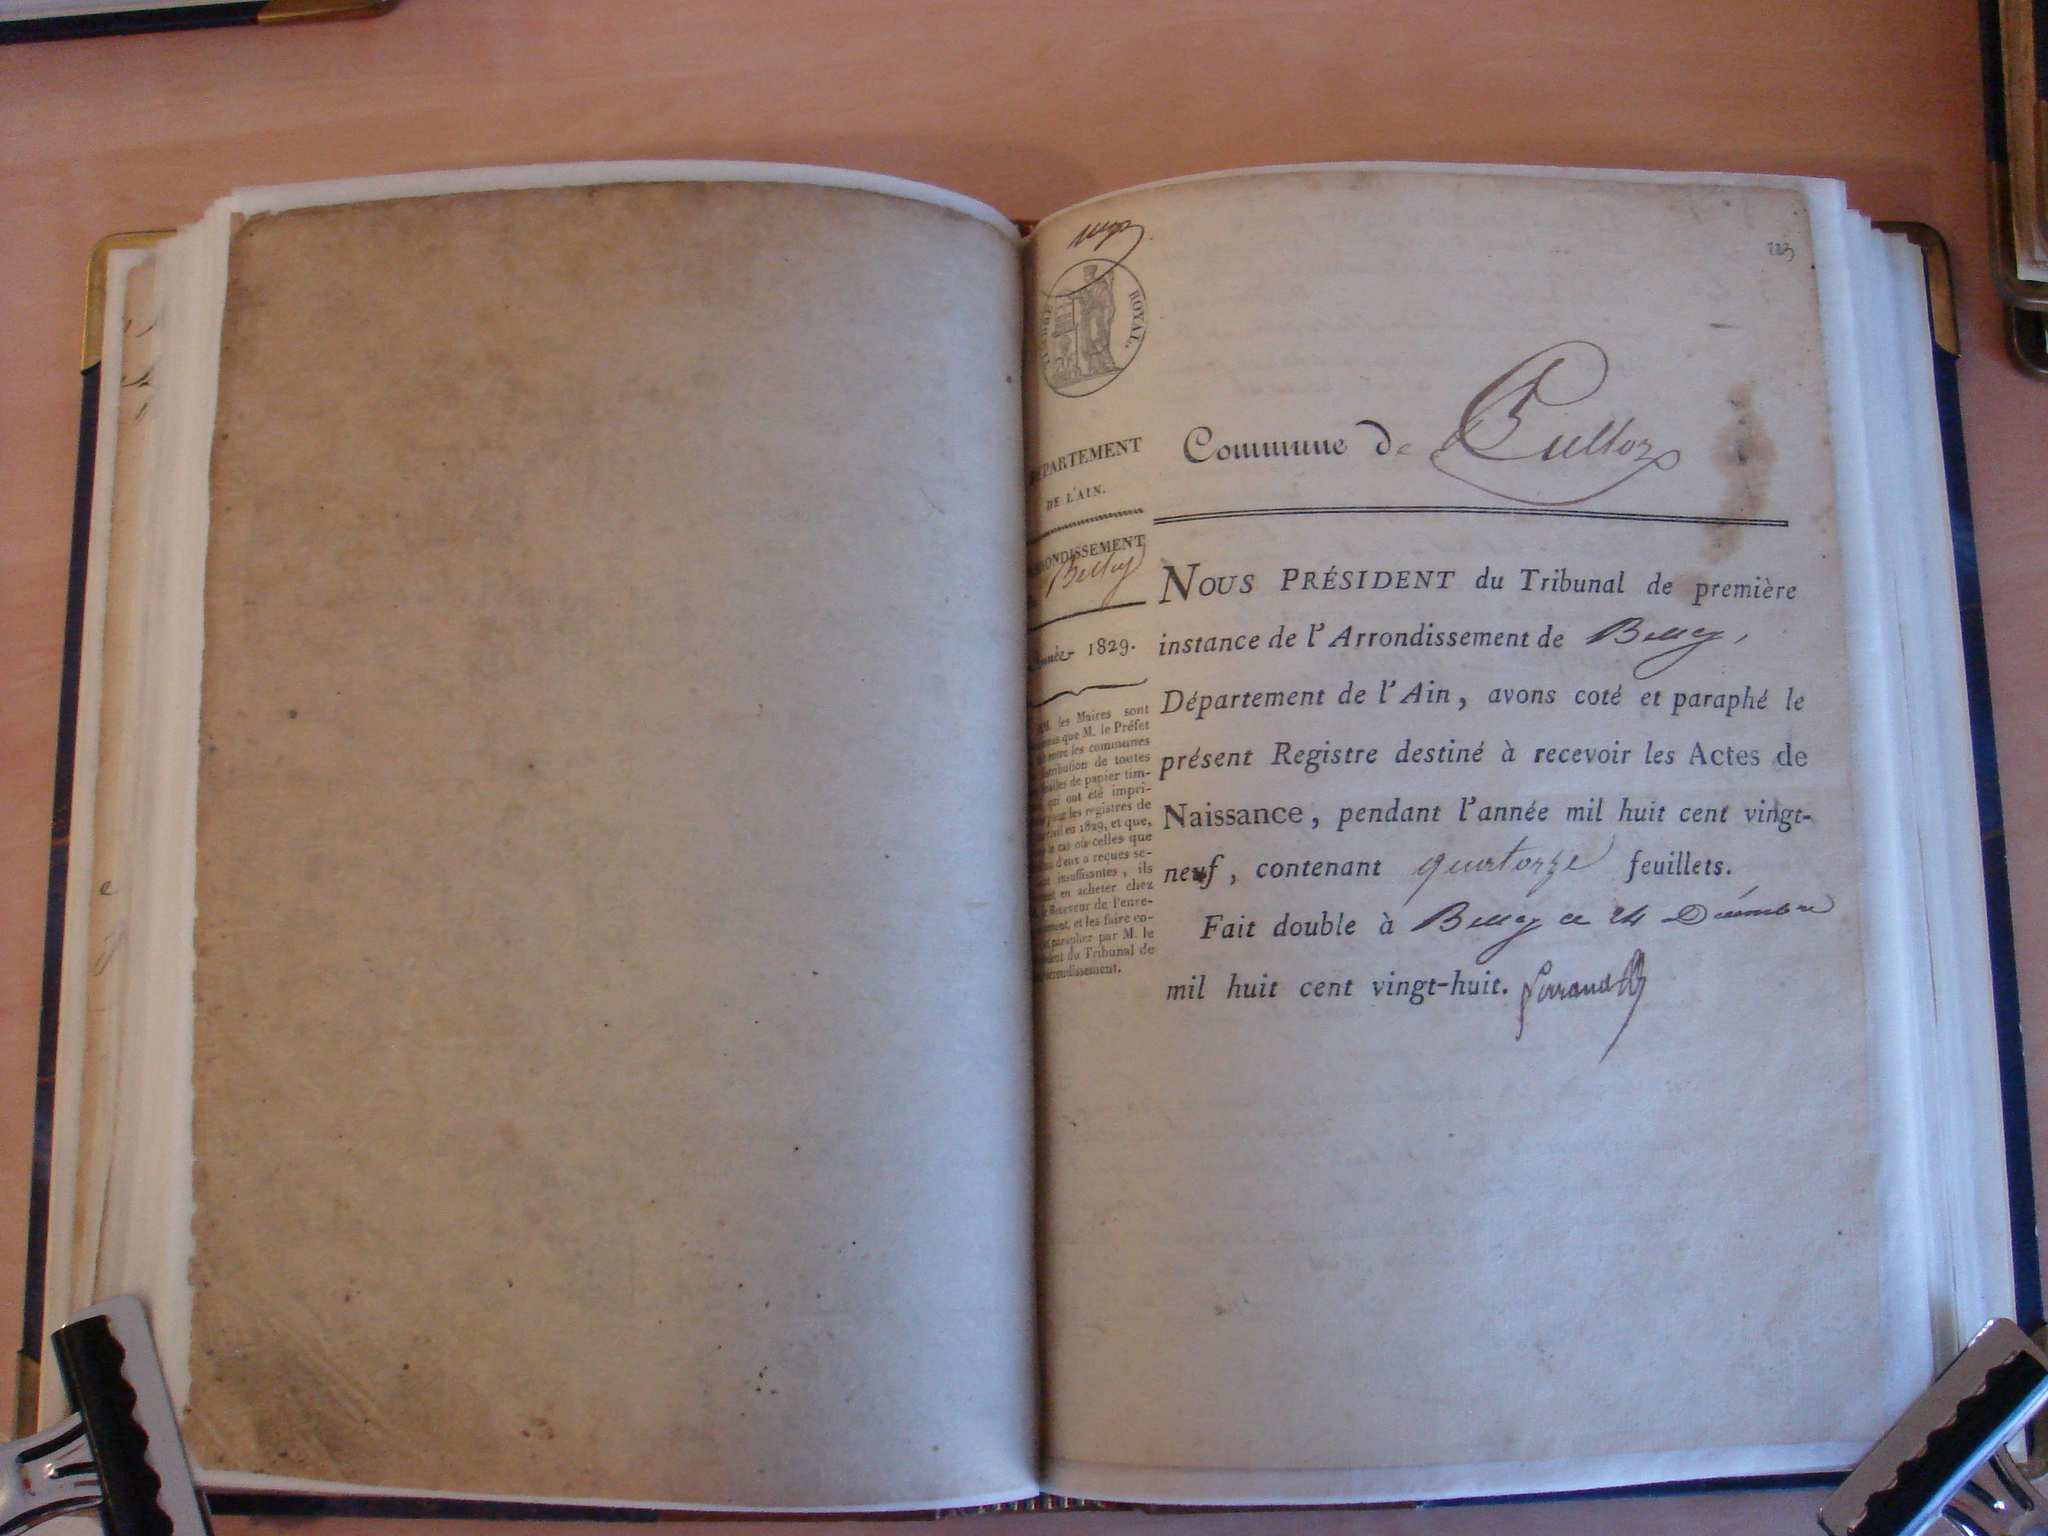 123
ROYAL.
DÉPARTEMENT
DE L'AIN.
ARRONDISSEMENT
Belley
Année 1829.
MM. les Maires sont
que M. le Préfet
entre les communes
distribution de toutes
feuilles de papier tim-
qui ont été impri-
pour les registres de
civil en 1829, et que,
le cas où celles que
d'eux a reçues se-
insuffisantes, ils
en acheter chez
le Receveur de l'enre-
et les faire co-
parapher par M. le
du Tribunal de
arrondissement.
Commune de Culloz
NOUS PRÉSIDENT du Tribunal de première
instance de l'Arrondissement de Belley,
Département de l'Ain, avons coté et paraphé le
présent Registre destiné à recevoir les Actes de
Naissance, pendant l'année mil huit cent vingt-
neuf, contenant quatorze feuillets.
Fait double à Belley ce 24 Décembre
mil huit cent vingt-huit.